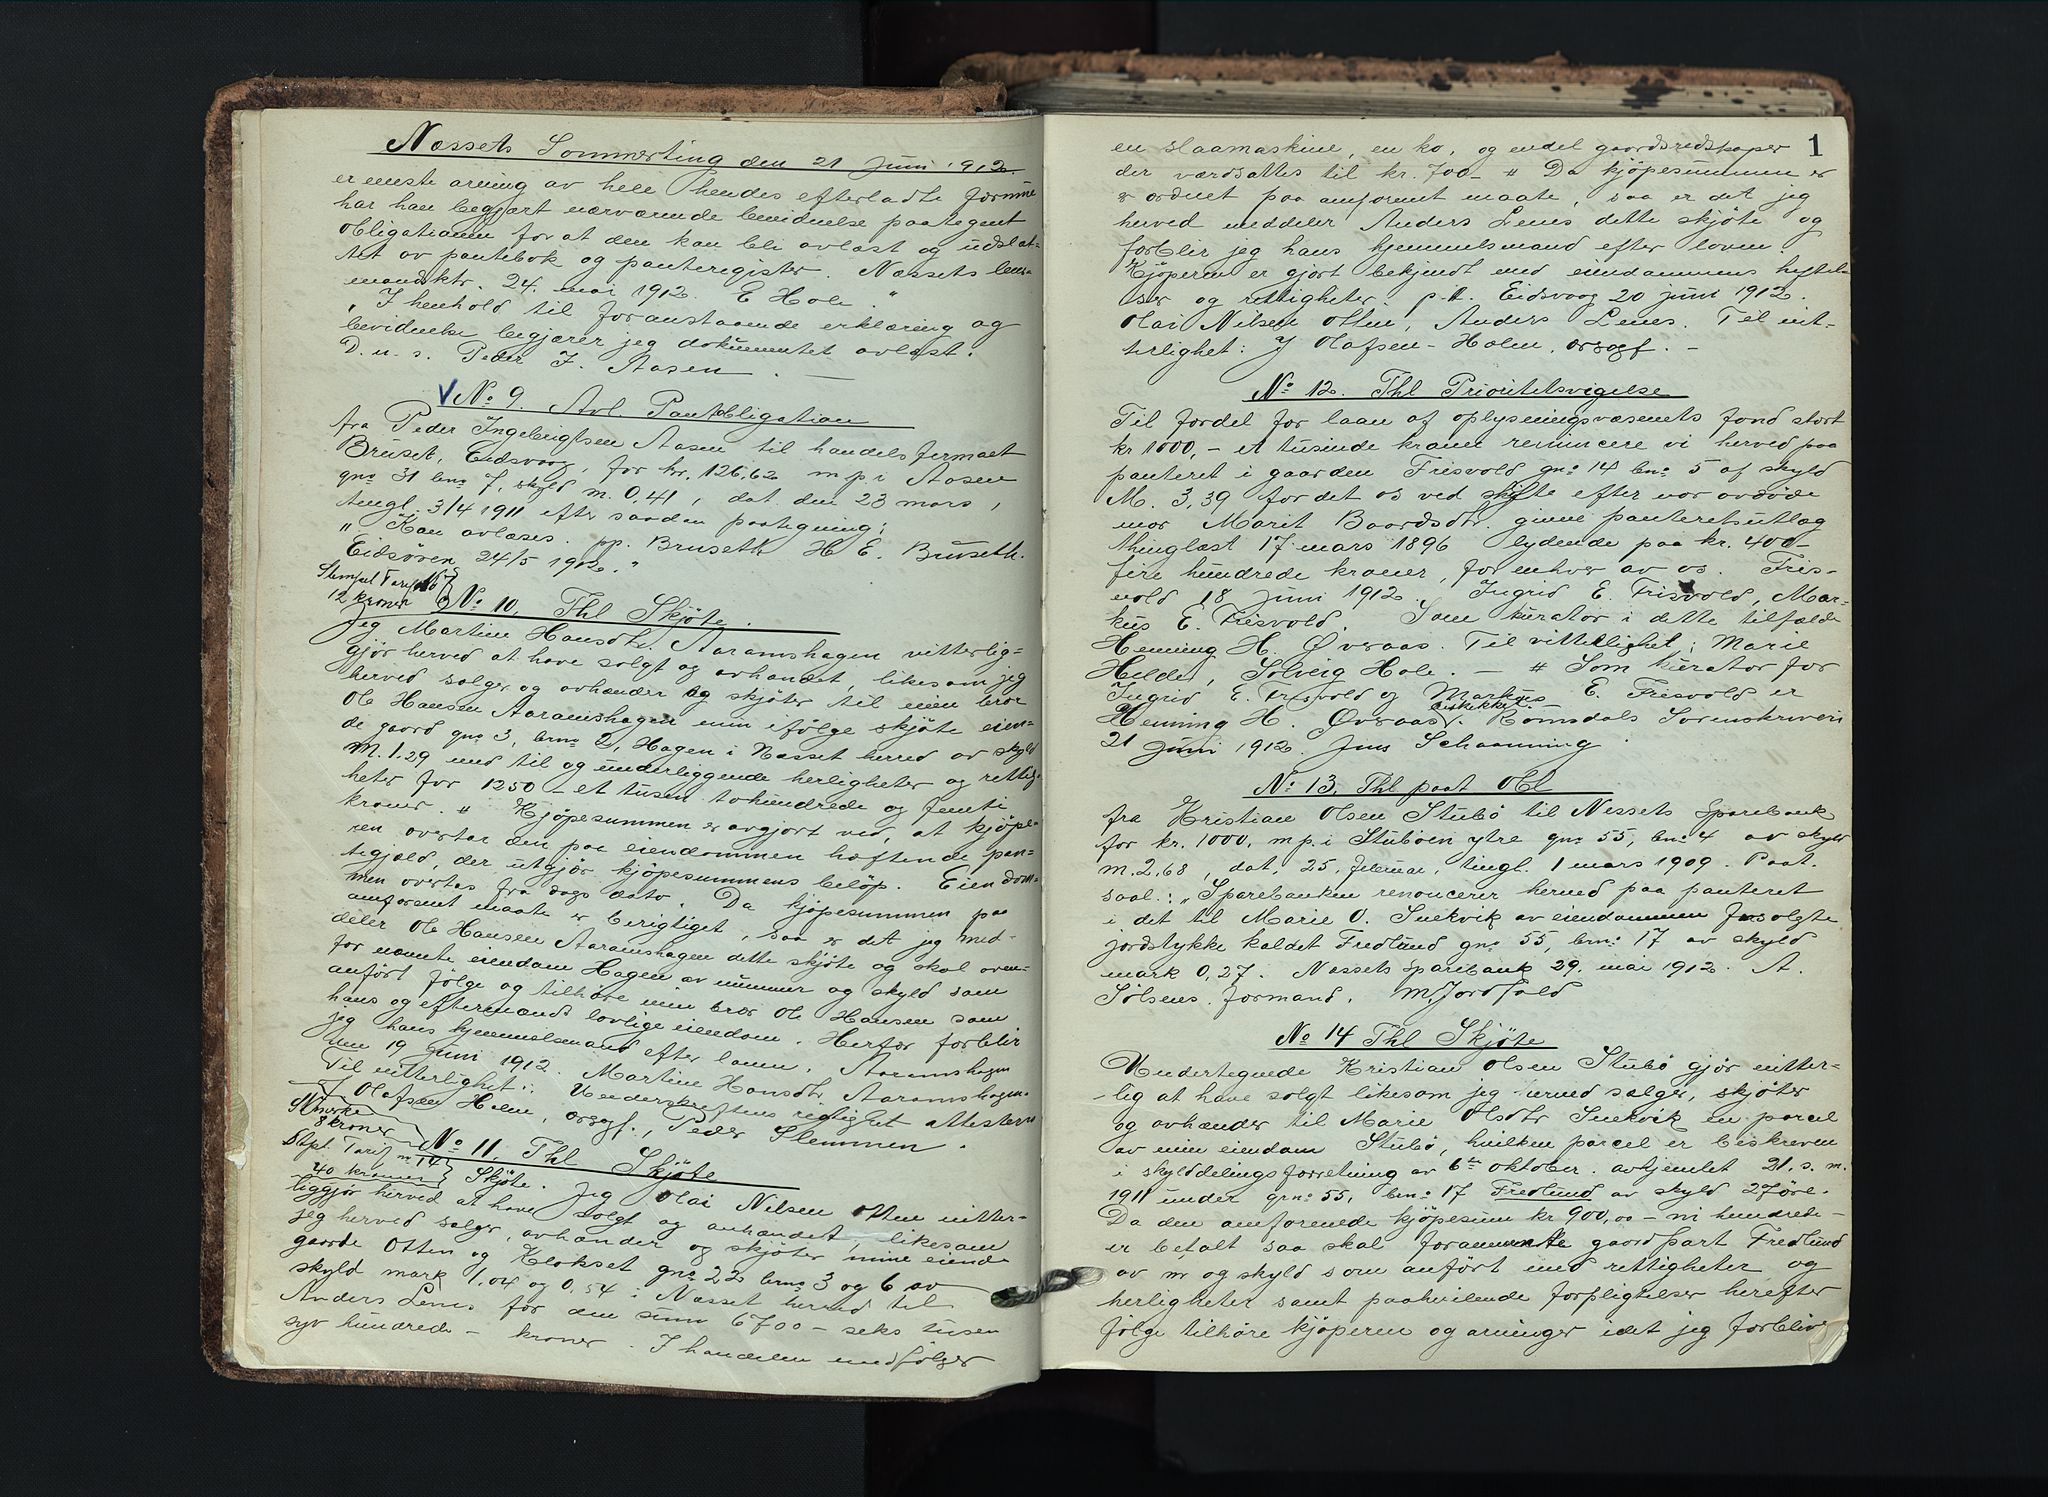 Næssets Sommerting den 21 Juni 1912.
er eneste arving av hele hendes efterladte formue
har han begjært nærværende bevidnelse paategnet
obligationen for at den kan bli avlæst og udslat-
tet av pantebok og panteregister. Næssets lens-
mandsktr. 24. mai 1912. E Hole."
"I henhold til foranstaaende erklæring og
bevidnelse begjærer jeg dokumentet avlæst.
D. u. s. Peder I. Aasen. —
No 9. Avl. Pantobligation
fra Peder Ingebrigtsen Aasen til handelsfirmaet
Bruset, Eidsvaag, for kr. 126,62 m.p. i Aasen
gno 31 bno 7, skyld m. 0,41, dat. den 23 mars,
tingl. 3/4 1911 efter saadan paategning:
" Kan avlæses. pp. Bruseth H E. Bruseth.
Eidsøren 24/5 1912."
Stempel Tarif
12 kroner
No 10. Thl Skjöte.
Jeg Martine Hansdtr. Aaramshagen vitterlig=
gjör herved at have solgt og avhændet, likesom jeg
herved sælger og avhænder og skjöter til min bror
Ole Hansen Aaramshagen min ifölge skjöte eien-
de gaard gno 3, brno 2, Hagen i Næsset herred av skyld
M. 1.29 med til og underliggende herligheter og rettig-
heter for 1250 - et tusen tohundrede og femti
kroner. " Kjöpesummen er avgjort ved, at kjöpe-
ren overtar den paa eiendommen hæftende pan-
tegjæld, der utgjör kjöpesummens belöp. Eiendom-
men overtas fra dags dato. Da kjöpesummen paa
anförent maate er berigtiget, saa er det jeg med-
deler Ole Hansen Aaramshagen dette skjöte og skal oven-
for nævnte eiendom Hagen av nummer og skyld som
anfört fölge og tilhöre min bror Ole Hansen som
hans og eftermænds lovlige eiendom. Herfor forblir
jeg hans hjemmelsmand efter loven. Aaramshagen
den 19 Juni 1912. Martine Hansdtr. Aaramshagen.
Til vitterlighet: Underskriftens rigtighet attesteres
J Olafsen Holm, orsogf., Peder Slemmen.
St. merke
8 kroner
Stpl. Tarif m 14
40 kroner
No 11. Thl Skjöte
Skjöte. Jeg Olai Nilsen Otten vitter-
liggjör herved at have solgt og avhændet, likesom
jeg herved sælger, avhænder og skjöter mine eiende
gaarde Otten og Klokset gno 22 brno 3 og 6 av
skyld mark 1,04 og 0,54 i Næsset herred til
Anders Lenes for den sum 6700 - seks tusen
syv hundrede - kroner. I handelen medfölger
1
en slaamaskine, en ko, og endel gaardsredskaper
der værdsattes til kr. 700 - " Da kjöpesummen er
ordnet paa anförent maate, saa er det jeg
herved meddeler Anders Lenes dette skjöte og
forblir jeg hans hjemmelsmand efter loven.
Kjöperen er gjort bekjendt med eiendommens heftel-
ser og rettigheter. p.t. Eidsvaag 20 juni 1912.
Olai Nilsen Otten, Anders Lenes. Til vit-
terlighet: J Olafsen-Holm, orsogf. —
No 12. Thl Prioritetsvigelse
Til fordel for laan af oplysningsvæsenets fond stort
kr 1000, - et tusinde kroner renuncere vi herved paa
panteret i gaarden Frisvold gno 14 bno 5 af skyld
M. 3,39 for det os ved skifte efter vor avdöde
mor Marit Baardsdtr. givne panteretsutlæg
thinglæst 17 mars 1896 lydende paa kr. 400
fire hundrede kroner, for enhver av os. Fris-
vold 18 Juni 1912. Ingrid E. Frisvold, Mar-
kus E. Frisvold. Som kurator i dette tilfælde
Henning H. Øvraas. Til vitterlighet: Marie
Helde, Solveig Hole. — " Som kurator for
Ingrid E. Frisvold og Markus E. Frisvold er
beskikket
Henning H. Øvraas. Romsdals Sorenskriveri
21 Juni 1912. Jens Schaanning
No 13. Thl paat Obl
fra Kristian Olsen Stubö til Nessets Sparebank
for kr. 1000, m.p. i Stuböen ytre gno 55, bno 4 av skyld
m. 2,68, dat. 25. februar, tingl. 1 mars 1909. Paat.
saal.: "Sparebanken renoncerer herved paa panteret
i det til Marie O. Snekvik av eiendommen frasolgte
jordstykke kaldet Fredlund gno 55, brno 17 av skyld
mark 0,27. Næssets Sparebank 29. mai 1912. A.
Sölsens. formand. M Jordfald
No 14 Thl Skjöte
Undertegnede Kristian Olsen Stubö gjör vitter-
lig at have solgt likesom jeg herved sælger, skjöter
og avhænder til Marie Olsdtr Snekvik en parcel
av min eiendom Stubö, hvilken parcel er beskreven
i skylddelingsforretning av 6te oktober. avhjemlet 21. s. m.
1911 under grno 55, bno 17 Fredlund av skyld 27öre.
Da den omforenede kjöpesum kr 900,00 - ni hundrede -
er betalt saa skal forannævnte gaardpart Fredlund
av nr og skyld som anfört med rettigheter og
herligheter samt paahvilende forpligtelser herefter
fölge tilhöre kjöperen og arvinger idet jeg forbliver